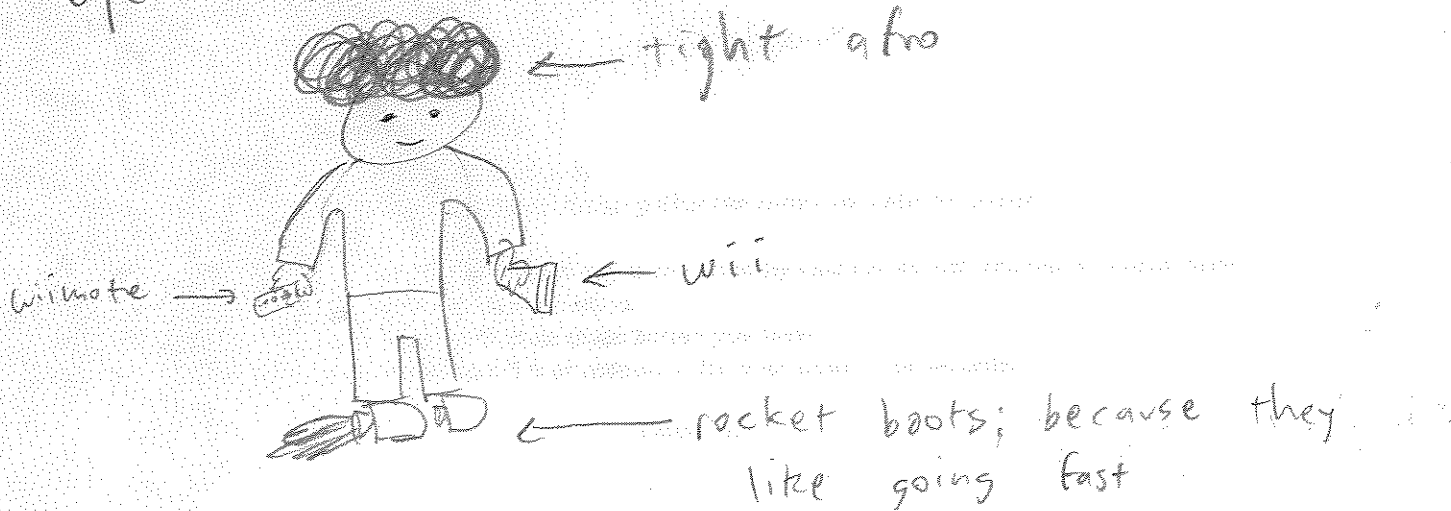 tight afro
wii
wiimote
rocket boots; because they
like going fast